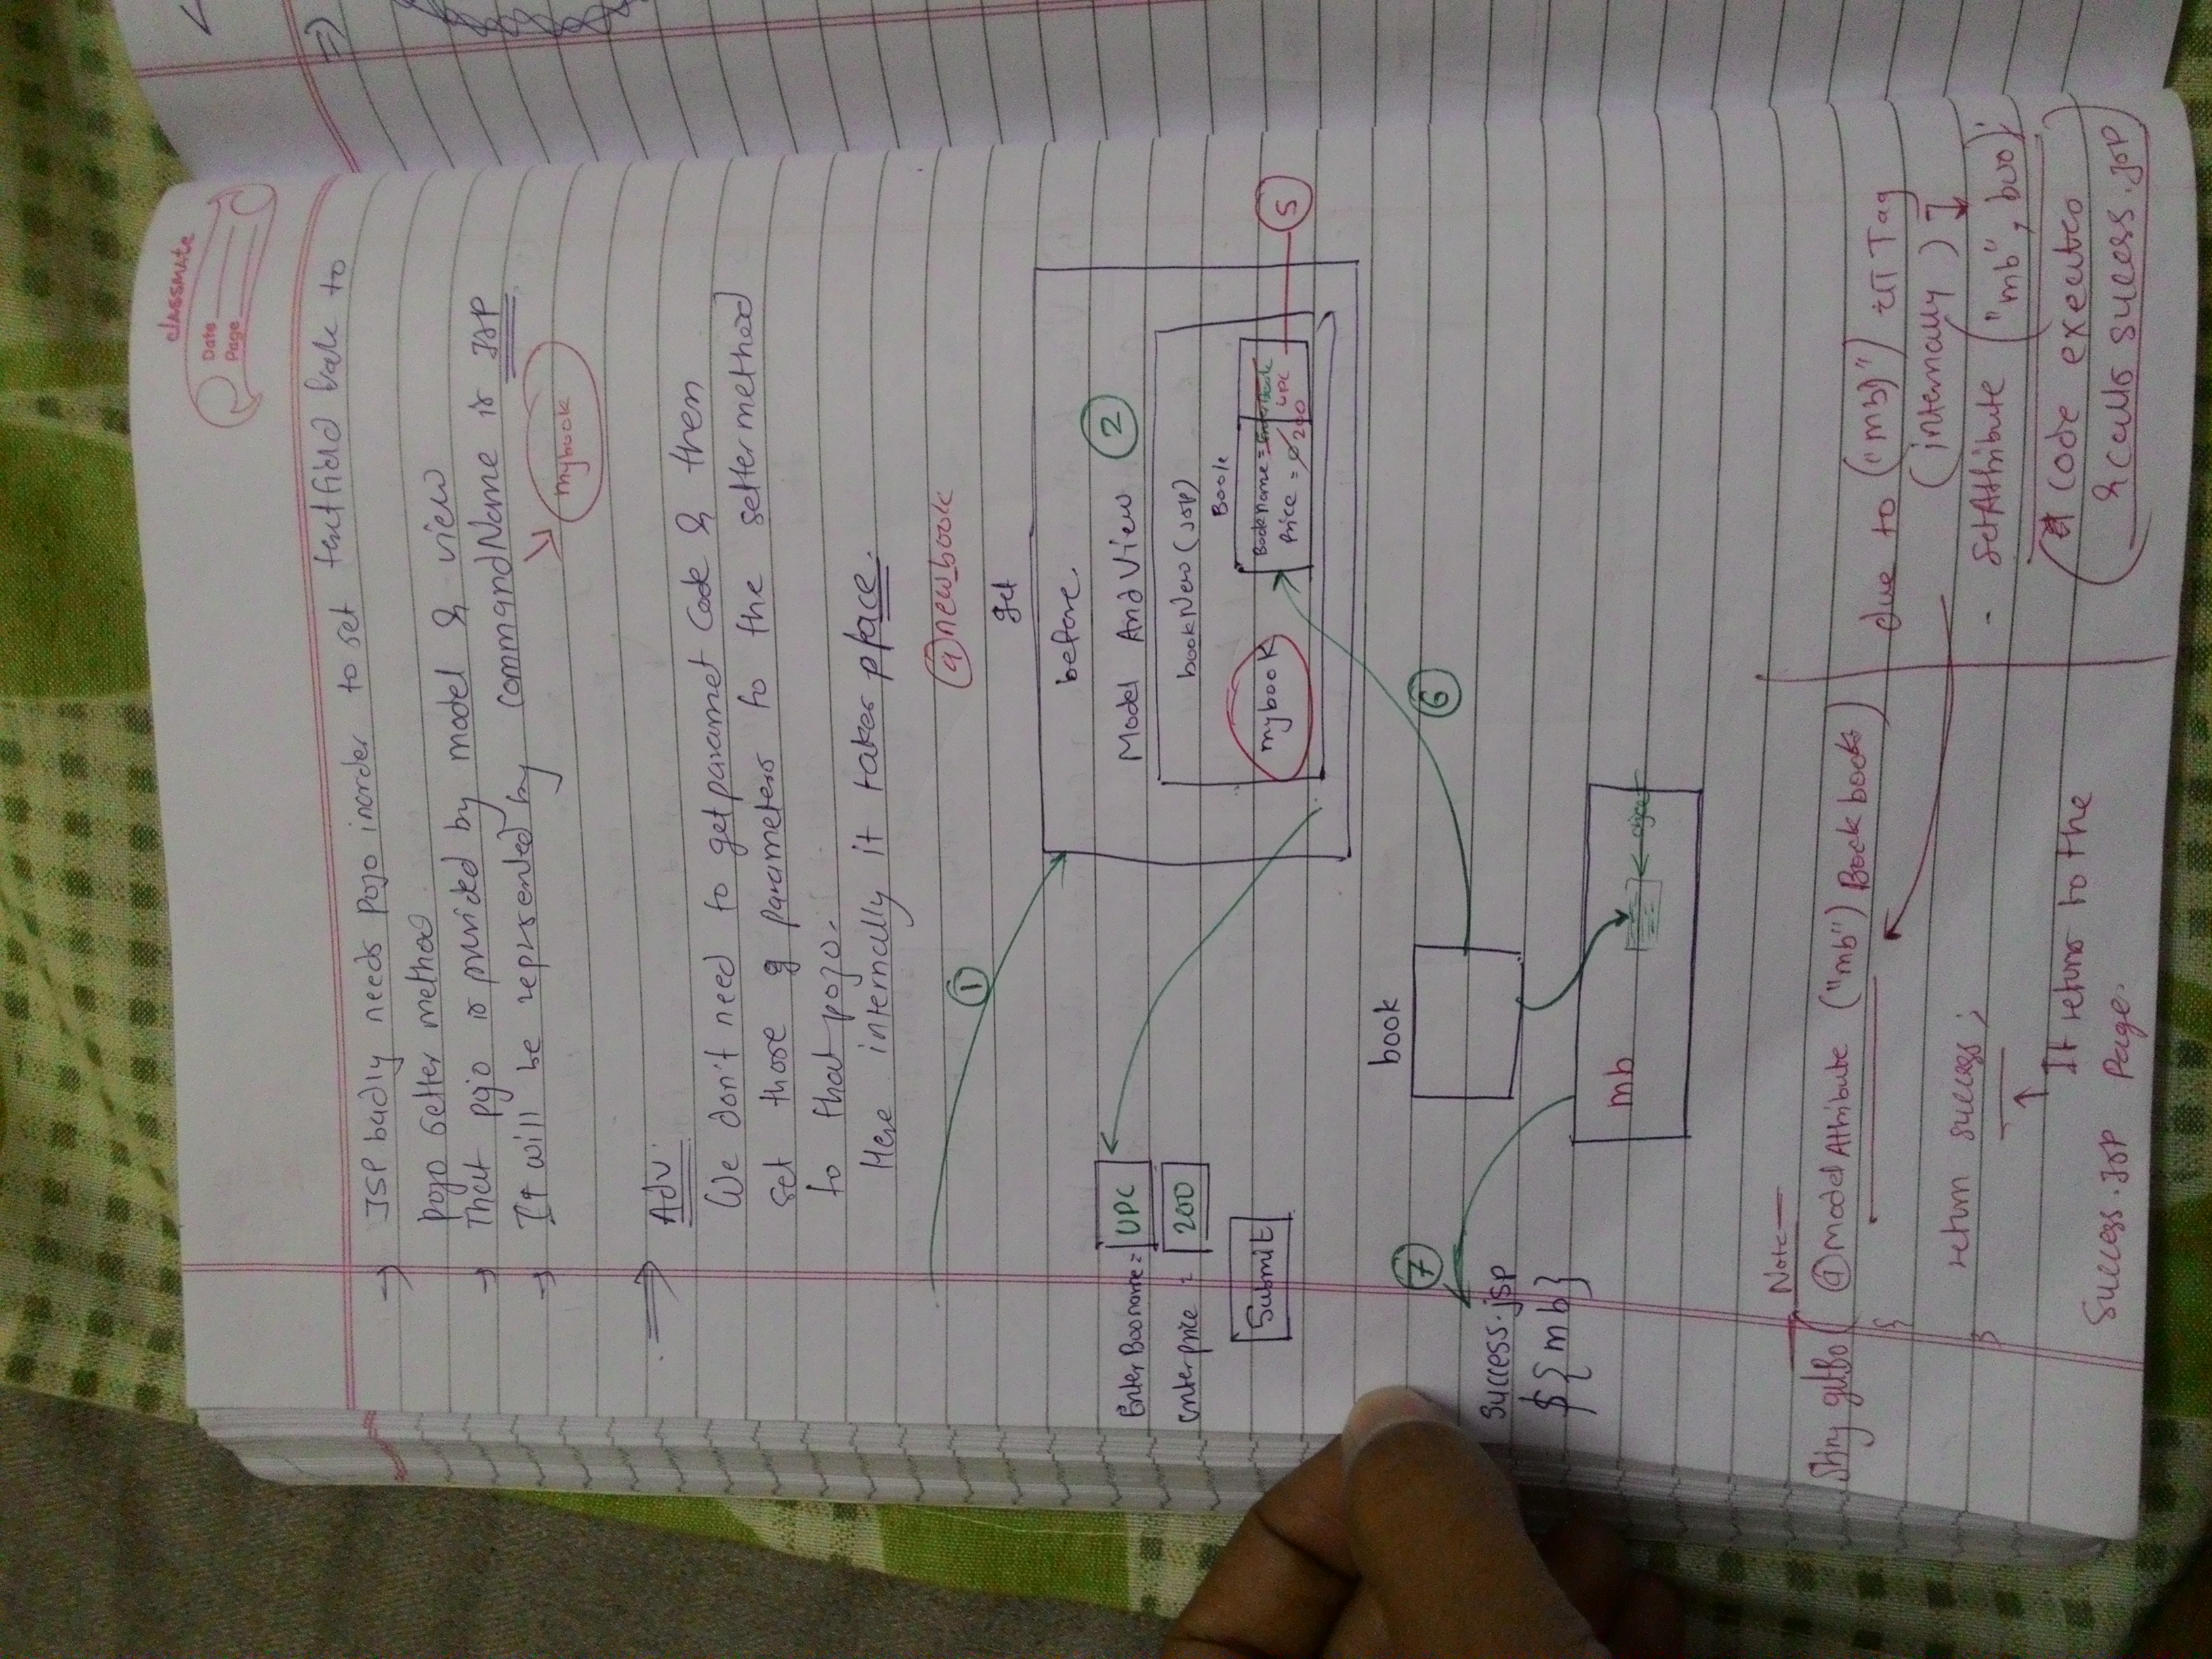 classmate
Date
Page
→ JSP badly needs pojo inorder to set textfield back to
pojo setter method.
→ That pojo is provided by model & view
→ It will be represented by commandName is JSP
mybook
⇒ Adv:
We don't need to getparamet code & then
set those parameters to the setter method
to that pojo.
Here internally it takes place.
①
@new_book
get
before
Model AndView ②
bookNew (jsp)
Book
mybook
BookName =
UPC
Price = 0 200
⑤
Enter Booname = UPC
enter price = 200
Submit
book
⑥
⑦
success.jsp
${mb}
mb
← object
Note
String getBo( @modelAttribute ("mb") Book book)
{
return success;
}
↑
It returns to the
Success.JSP page.
due to ("mb") Tag
(internally)
- setAttribute ("mb", boo);
code executes
& calls sucess.jsp